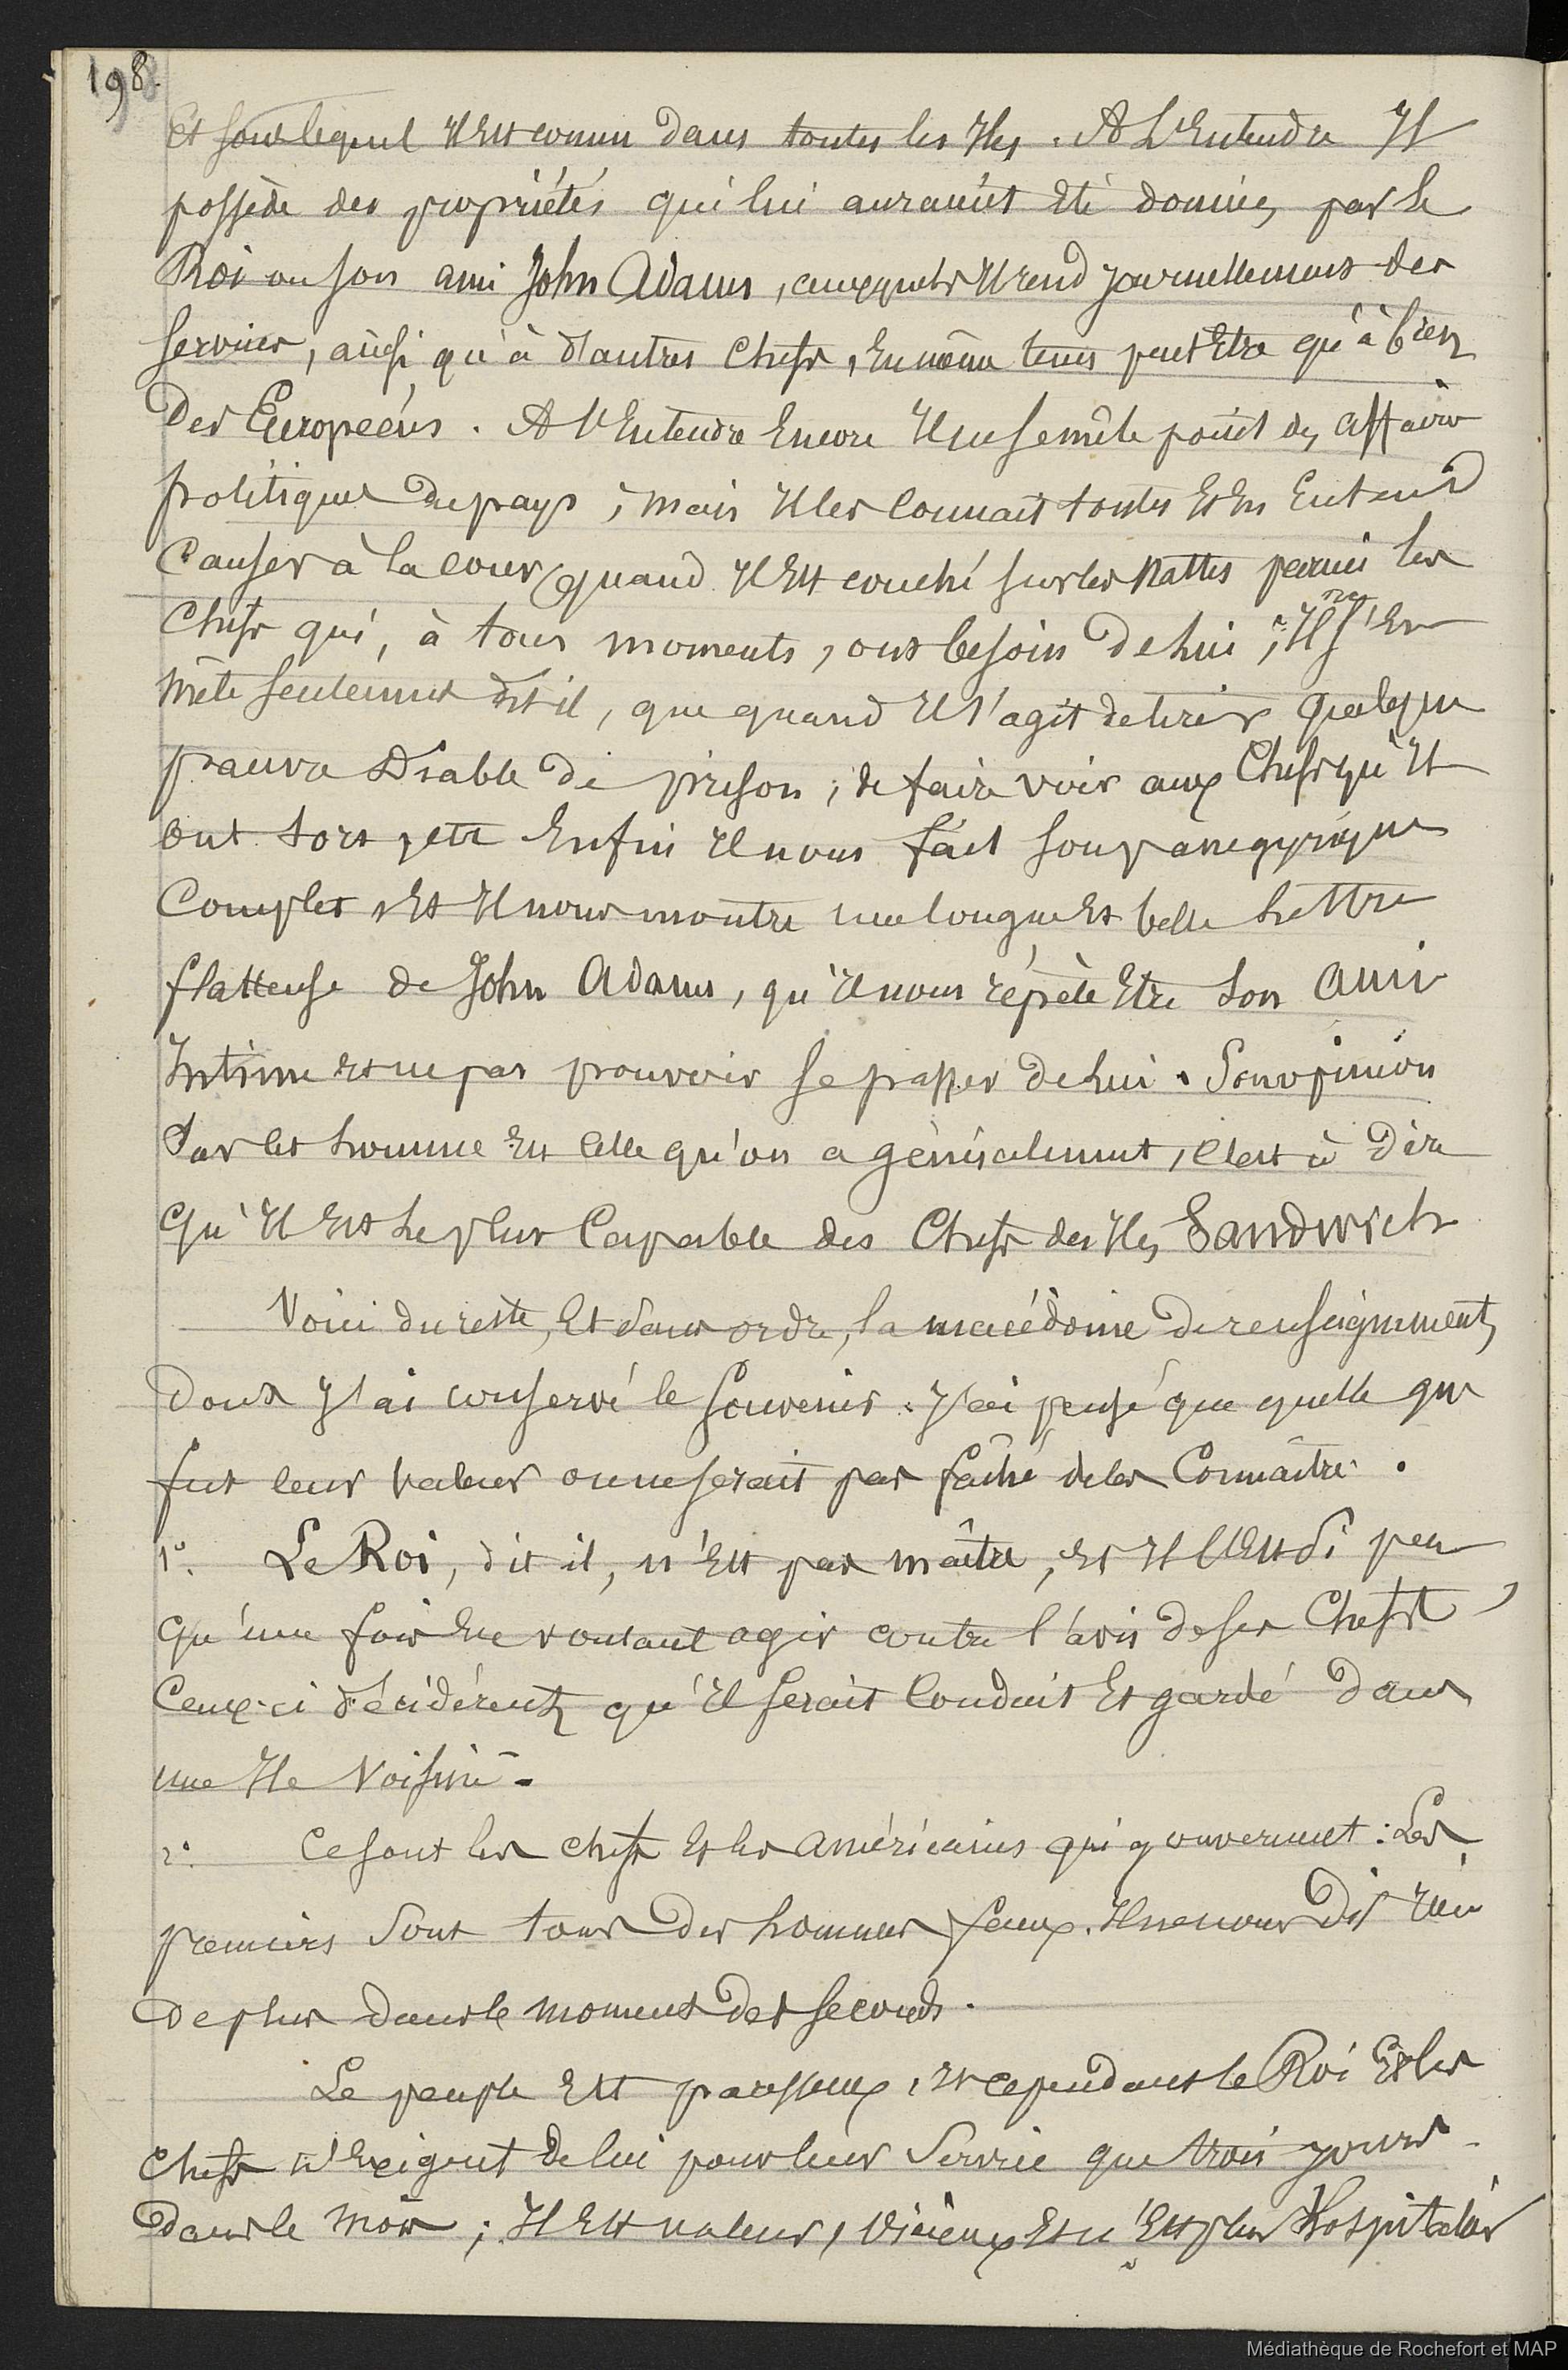 198.
Et sous lequel Il Est connu dans toutes les Iles. A L'Entendre Il
possède des propriétés qui lui auraient Eté données par le
Roi ou son ami John Adams, auxquels Il rend journellement des
services, ainsi qu'à d'autres Chefs, En même tems peut Etre qu'à bien
Des Européens. A l'Entendre Encore Il ne se mêle point des affaires
politiques du pays; mais Il les Connait toutes Et En Entend
Causer à la cour quand Il Est couché sur les Nattes parmi les
Chefs qui, à tous moments, ont besoin de lui; Il ne s'En
mêle seulement dit il, que quand Il s'agit de tirer quelque
pauvre Diable de prison; de faire voir aux Chefs qu'Il
ont tort, etc Enfin Il nous fait son panegyrique
Complet, Et Il nous montre une longue Et belle Lettre
flatteuse de John Adams, qu'Il nous répète Etre son ami
Intime et ne pas pouvoir se passer de lui. Son opinion
sur Cet homme Est Celle qu'on a généralement, C'est à Dire
qu'Il Est Le plus Capable des Chefs des Iles Sandwich
Voici du reste, Et sans ordre, la macédoine de renseignements
Dont J'ai conservé le souvenir. J'ai pensé que quelle que
fut leur valeur on ne serait pas fâché de les Connaître.
1°. Le Roi, dit il, n'Est pas maître, Et Il l'Est si peu
qu'une fois Ene voulant agir contre l'avis de ses Chefs,
Ceux-ci décidèrent qu'Il serait Conduit Et gardé Dans
une Ile Voisine.
2°. Ce sont les chefs Et les américains qui gouvernent: Les
premiers sont tous Des hommes faux. Il ne nous Dit rien
De plus dans le moment Des seconds.
Le peuple Est paresseux, et cependant le Roi Et les
chefs n'Exigent de lui pour leur Service que trois jours
Dans le mois; Il Est voleur, Vicieux Et n'Est plus Hospitalier
Médiathèque de Rochefort et MAP